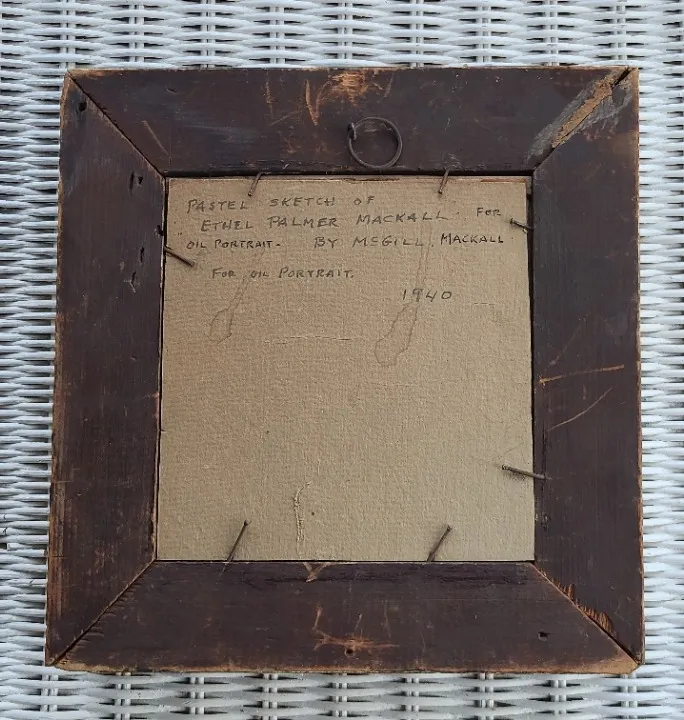 PASTEL SKETCH OF
ETHEL PALMER MACKALL. FOR
OIL PORTRAIT. BY MCGILL. MACKALL
FOR OIL PORTRAIT.
1940